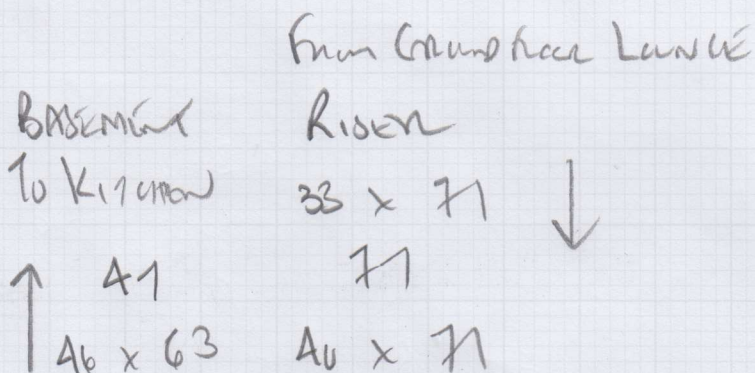 From Ground Floor Lounge
BASEMENT
To KITCHEN
41
46 x 63
RISER
33 x 71
71
40 x 71